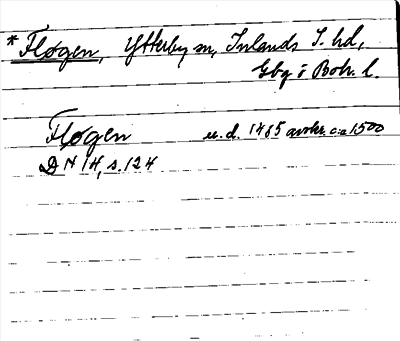 *Fløgen, Ytterby sn, Inlands S. hd,
Gbg o Boh. l.
Fløgen u. d. 1485 avskr. c:a 1500
DN 14, s. 124